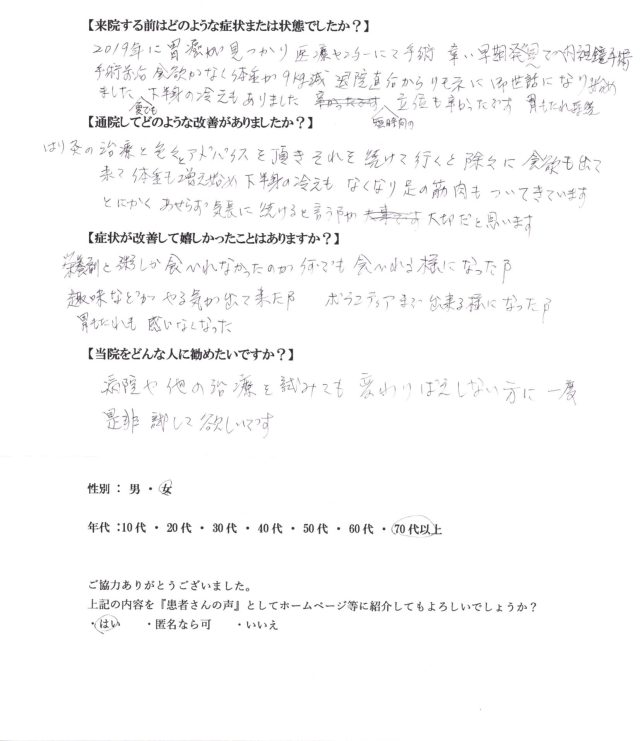 【来院する前はどのような症状または状態でしたか？】
2019年に胃癌が見つかり医療センターにて手術 幸い早期発見での内視鏡手術
手術前后食欲がなく体重が9kg減 退院直后からリモネに御世話になり始め
ました 下半身の冷えもありました 立位も辛かったです 胃もたれ
夏でも
短時間の
【通院してどのような改善がありましたか？】
はり灸の治療と色々とアドバイスを頂きそれを続けて行くと除々に食欲も出て
来て体重も増え始め下半身の冷えもなくなり足の筋肉もついてきています
とにかくあせらず気長に続けると言う事が大切だと思います
【症状が改善して嬉しかったことはありますか？】
栄養剤と粥しか食べれなかったのが何でも食べれる様になった事
趣味などが やる気が出て来た事 ボランティアまで出来る様になった事
胃もたれも感じなくなった
【当院をどんな人に勧めたいですか？】
病院や他の治療を試みても変わりばえしない方に一度
是非試して欲しいです
性別：男・女
年代：10代・20代・30代・40代・50代・60代・70代以上
ご協力ありがとうございました。
上記の内容を『患者さんの声』としてホームページ等に紹介してもよろしいでしょうか？
・はい ・匿名なら可 ・いいえ